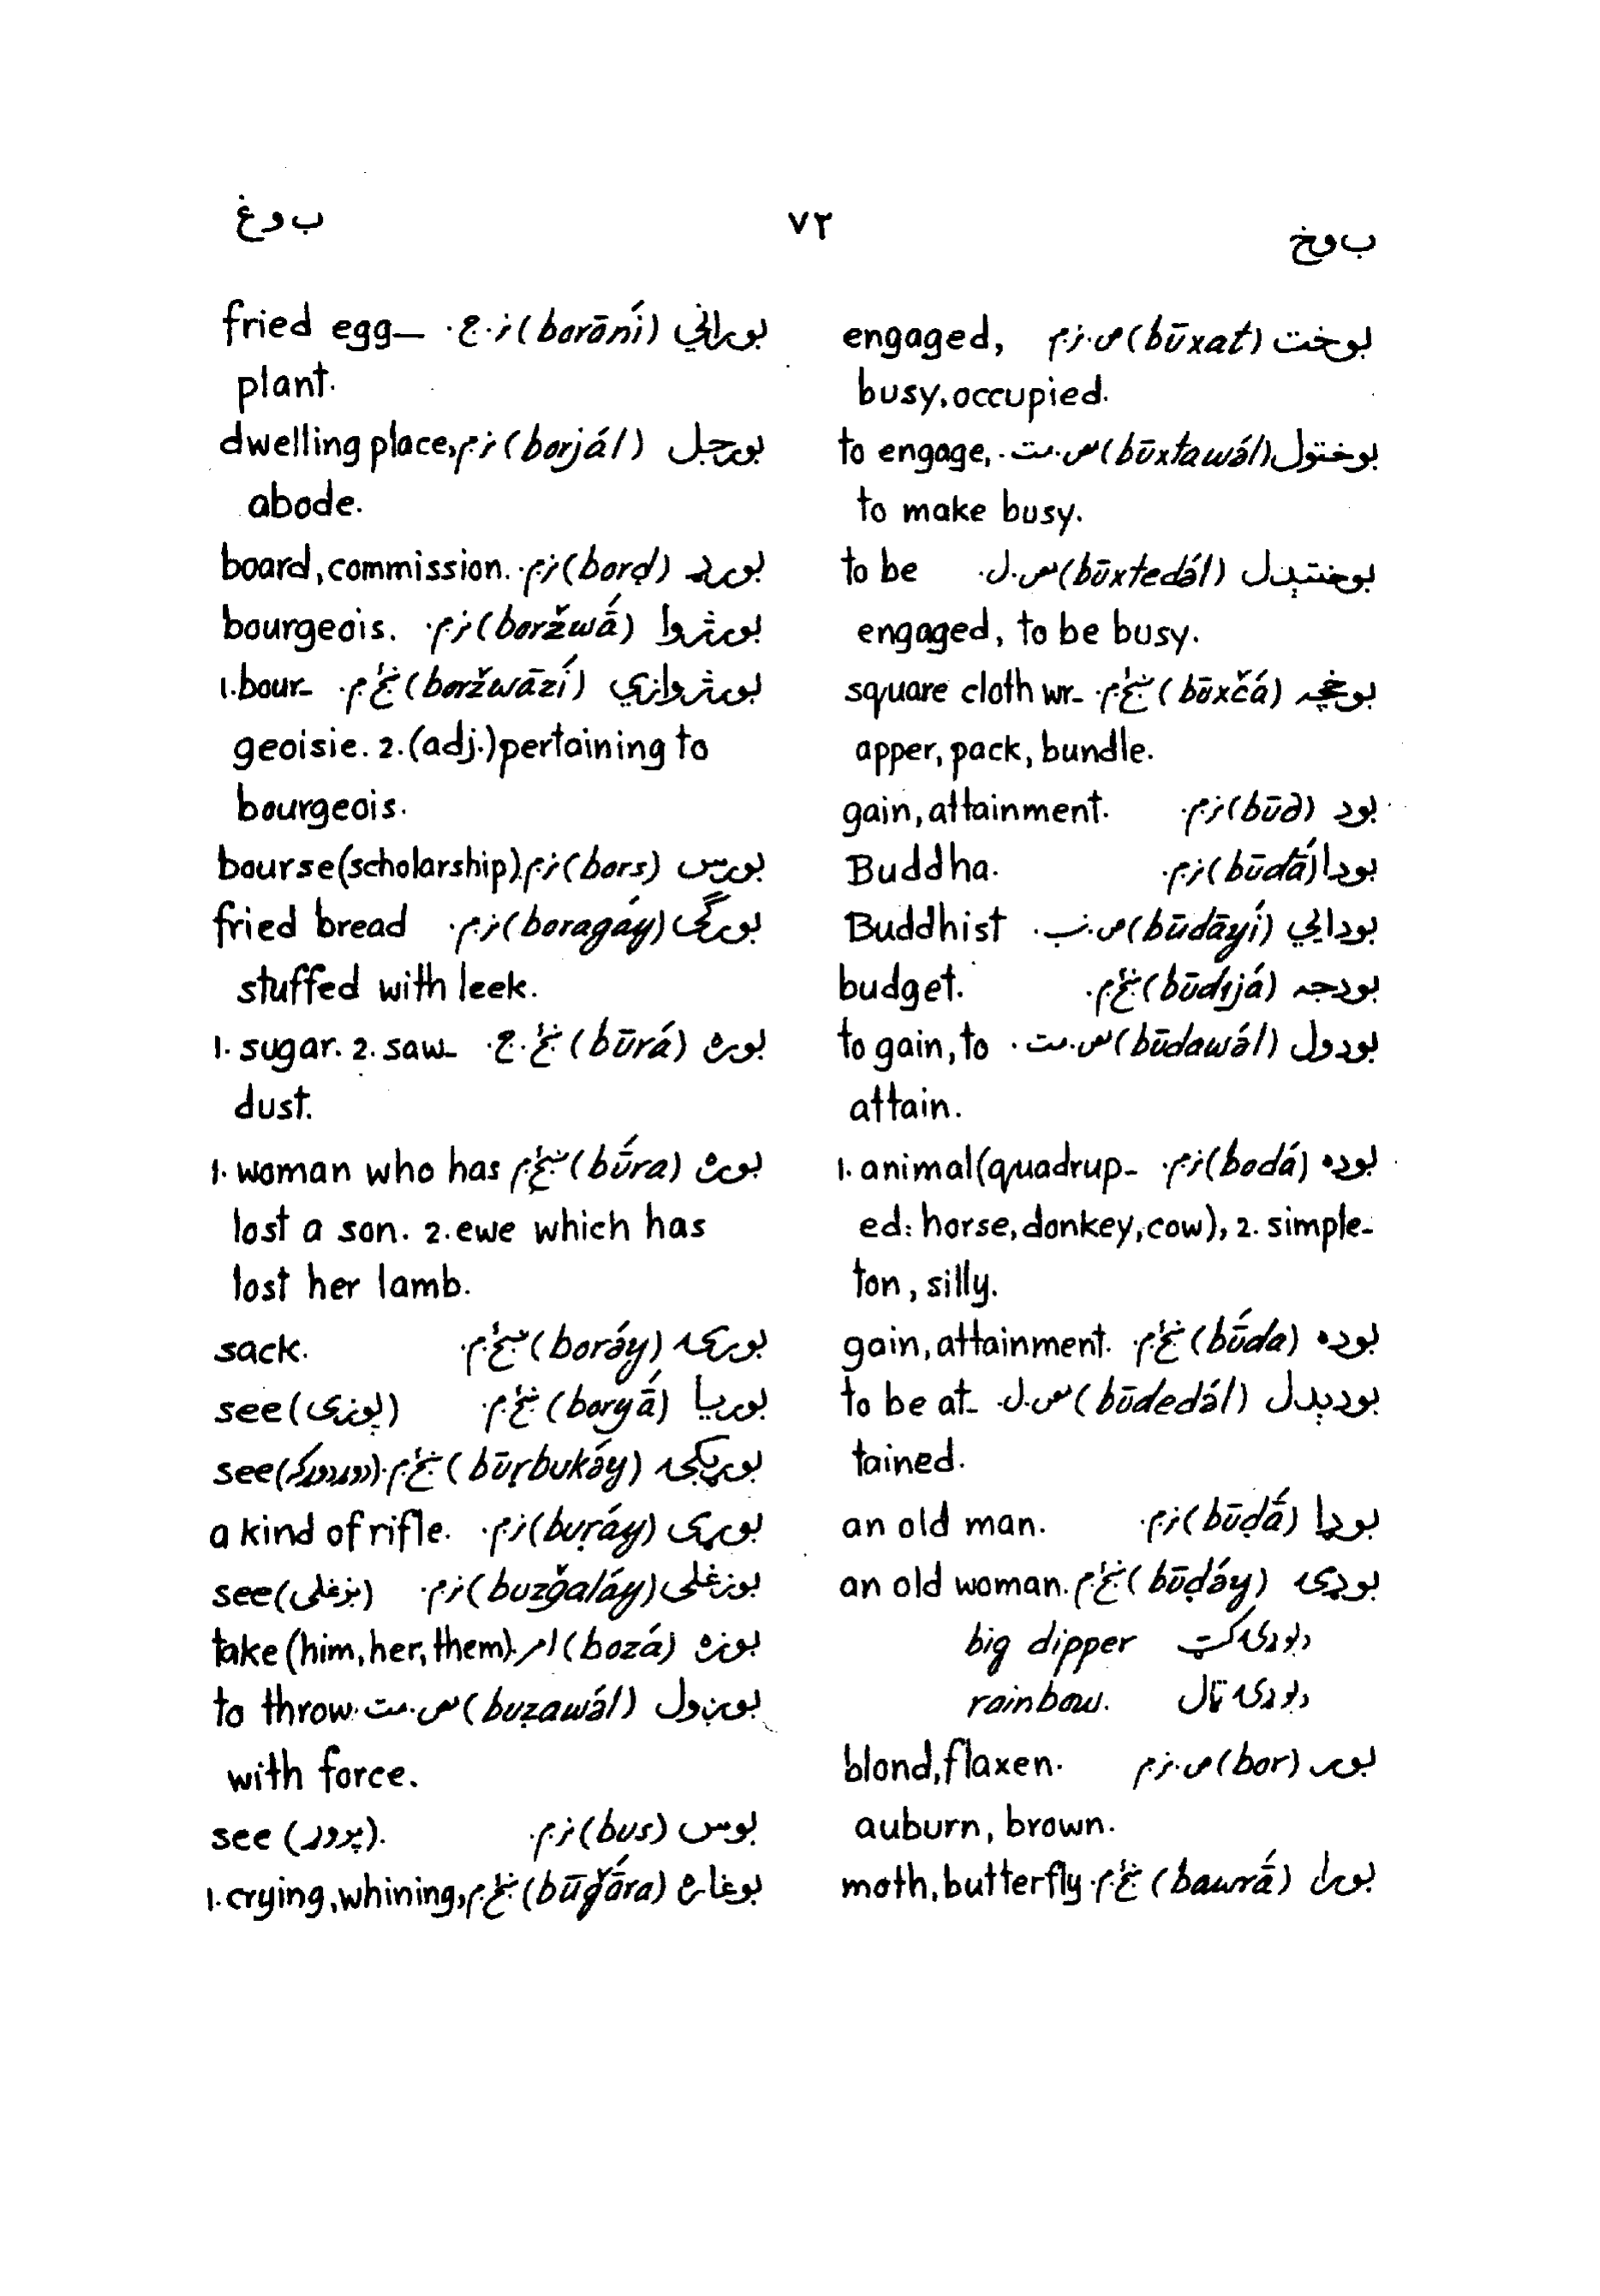 بوخ ۷۲ بوغ
بوخت (būxat) ص.ز.م engaged,
busy, occupied.
بوختول (būxtawə́l) ص.مت. to engage,
to make busy.
بوختېدل (būxtedə́l) ص.ل. to be
engaged, to be busy.
بوغچه (būxčá) ښځ.م. square cloth wr-
apper, pack, bundle.
بود (būd) ز.م. gain, attainment.
بودا (būdā́) ز.م. Buddha.
بودايي (būdāyí) ص.ب. Buddhist
بودجه (būdıjá) ښځ.م. budget.
بودول (būdawə́l) ص.مت. to gain, to
attain.
بوده (bodá) ز.م. 1. animal (quadrup-
ed: horse, donkey, cow), 2. simple-
ton, silly.
بوده (bū́da) ښځ.م. gain, attainment.
بودېدل (būdedə́l) ص.ل. to be at-
tained.
بوډا (būḍā́) ز.م. an old man.
بوډۍ (būḍə́y) ښځ.م. an old woman.
big dipper
د بوډۍ ټال rainbow.
بور (bor) ص.ز.م blond, flaxen.
auburn, brown.
بورا (bawrā́) ښځ.م. moth, butterfly
بوراني (borāní) ز.ج. fried egg-
plant.
بورجل (borjál) ز.م dwelling place,
abode.
بورډ (borḍ) ز.م. board, commission.
بورژوا (boržwā́) ز.م. bourgeois.
بورژوازي (boržwāzí) ښځ.م. 1. bour-
geoisie. 2. (adj.) pertaining to
bourgeois.
بورس (bors) ز.م bourse (scholarship).
بورگی (boragáy) ز.م. fried bread
stuffed with leek.
بوره (būrá) ښځ.ج. 1. sugar. 2. saw-
dust.
بوره (bū́ra) ښځ.م 1. woman who has
lost a son. 2. ewe which has
lost her lamb.
بورۍ (borə́y) ښځ.م. sack.
بوريا (boryā́) ښځ.م. see (پوزی)
(būṛbukə́y) ښځ.م. see
بوړی (buṛáy) ز.م. a kind of rifle.
بوزغلی (buzǧaláy) ز.م. see (بزغلی)
بوزه (bozá) امر take (him, her, them).
(buẓawə́l) ص.مت. to throw
with force.
بوس (bus) ز.م. see (پروړ).
بوغاره (būǧā́ra) ښځ.م 1. crying, whining,